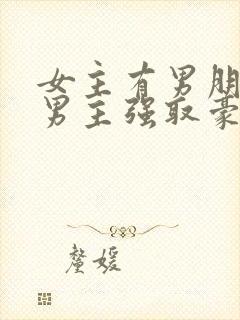 女主有男朋
男主强取豪
蓥媛